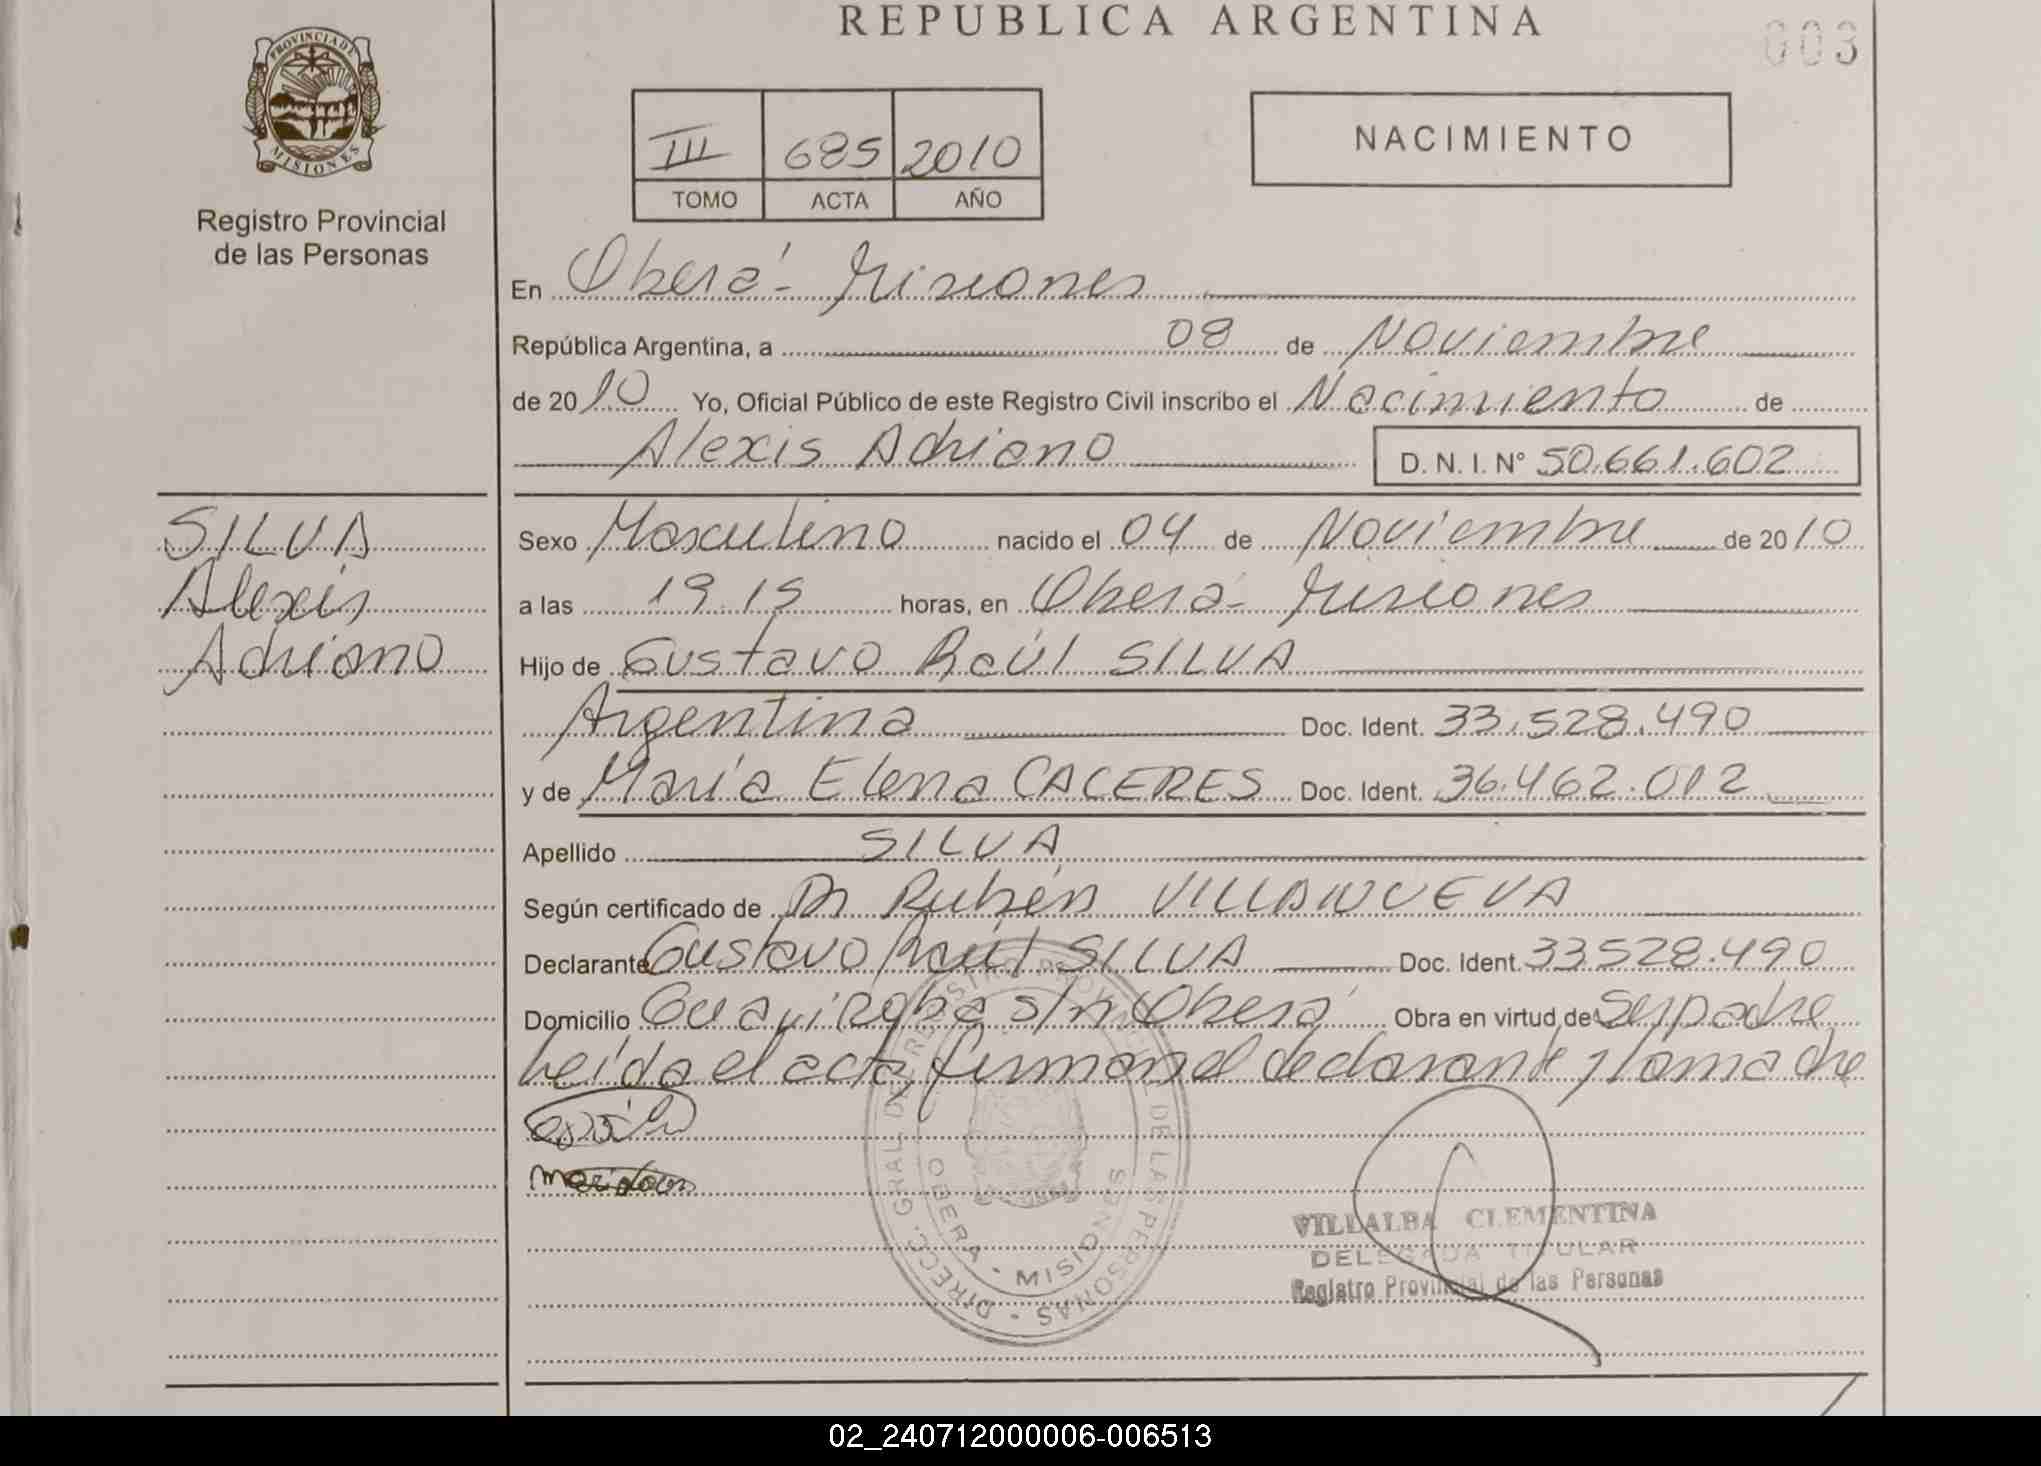 REPUBLICA ARGENTINA
003
PROVINCIA DE
MISIONES
Registro Provincial
de las Personas
III 685 2010
TOMO ACTA AÑO
NACIMIENTO
En Oberá - Misiones
República Argentina, a 08 de Noviembre
de 2010 Yo, Oficial Público de este Registro Civil inscribo el Nacimiento de
Alexis Adriano D. N. I. N° 50.661.602
SILVA
Alexis
Adriano
Sexo Masculino nacido el 04 de Noviembre de 2010
a las 19.15 horas, en Oberá - Misiones
Hijo de Gustavo Raúl SILVA
Argentina Doc. Ident. 33.528.490
y de María Elena CACERES Doc. Ident. 36.462.012
Apellido SILVA
Según certificado de Dr Rubén VILLANUEVA
Declarante Gustavo Raúl SILVA Doc. Ident. 33528.490
Domicilio s/n Oberá Obra en virtud de Ser padre
Leída el acta firman el declarante y la madre
DIRECC. GRAL. DEL REGISTRO PROVINCIAL DE LAS PERSONAS
OBERA - MISIONES
VILLALBA CLEMENTINA
DELEGADA TITULAR
Registro Provincial de las Personas
02_240712000006-006513